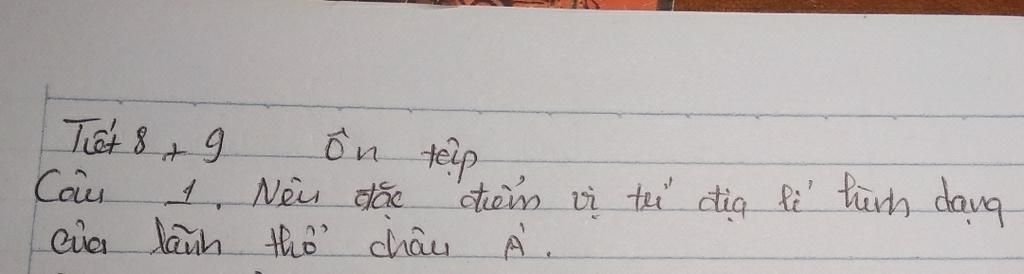 Tiết 8 + 9 Ôn tập
Câu 1. Nêu đặc điểm vị trí địa lí hình dạng
của lãnh thổ châu Á.